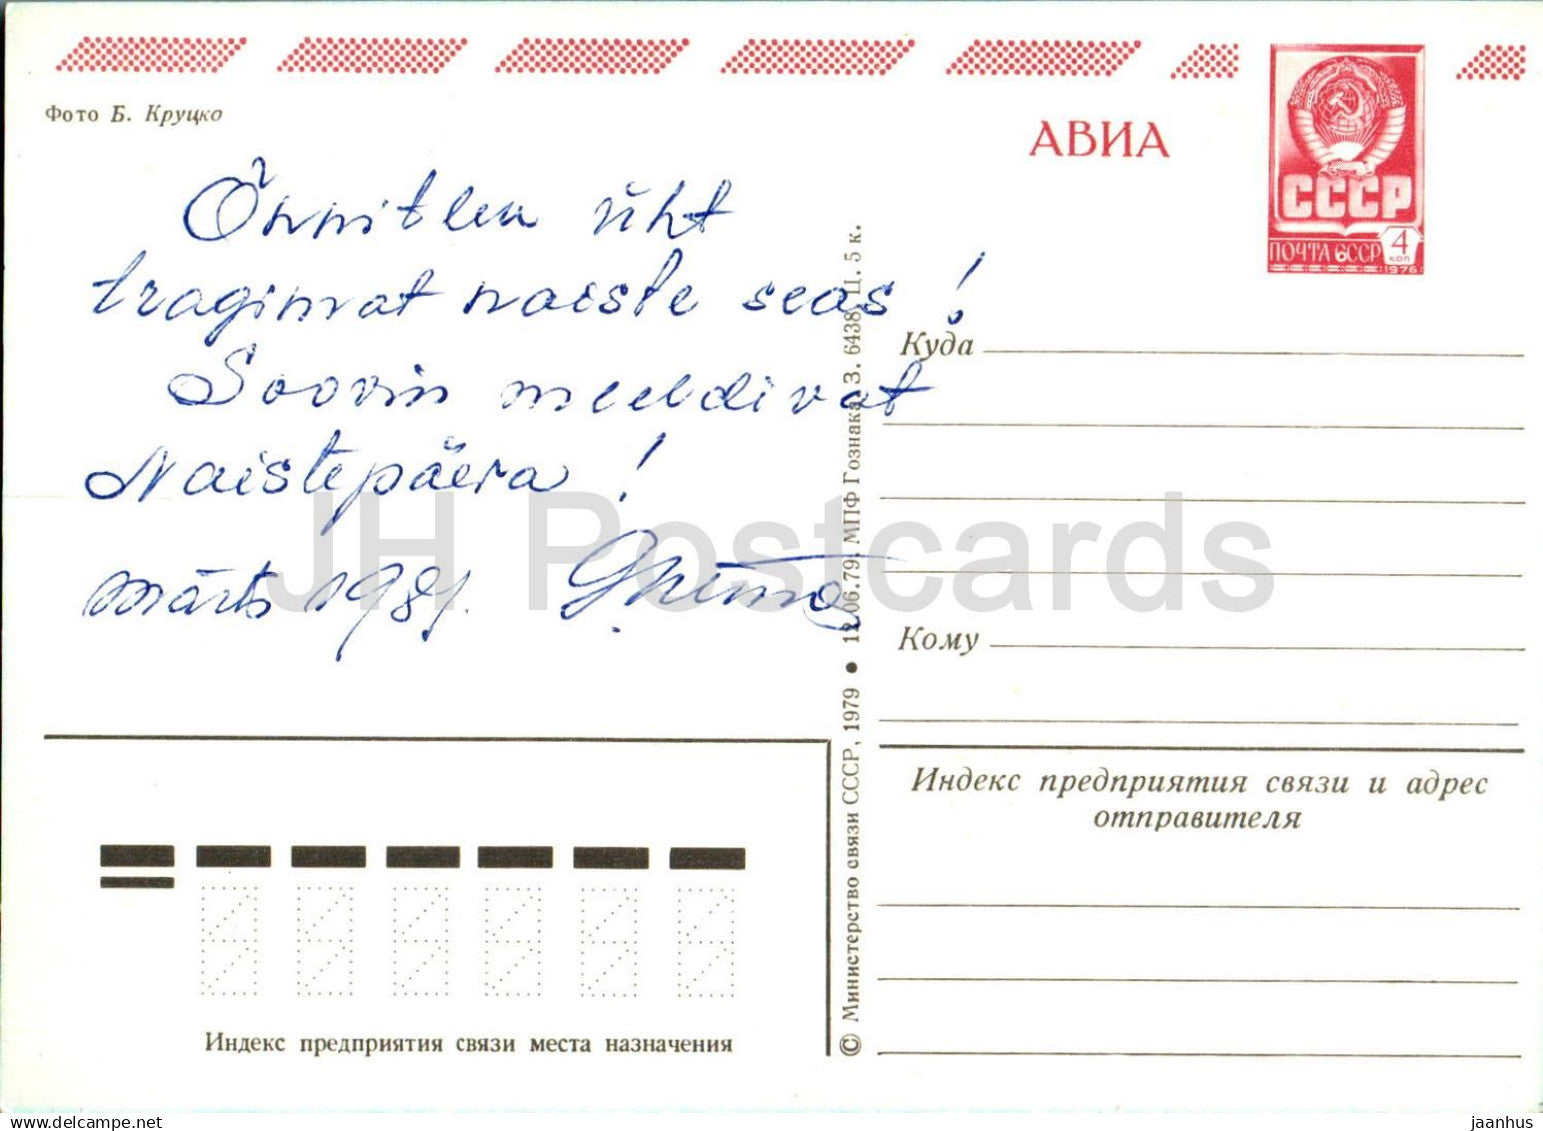 Фото Б. Круцко
АВИА
СССР
ПОЧТА СССР
4
коп
1976
Õnnitlen üht
tragimat naiste seas!
Soovin meeldivat
Naistepäeva!
märts 1981.
Куда
Кому
Индекс предприятия связи и адрес
отправителя
Индекс предприятия связи места назначения
© Министерство связи СССР, 1979 • 12.06.79. МПФ Гознака. З. 6438. Ц. 5 к.
JH Postcards
jaanhus
www.delcampe.net